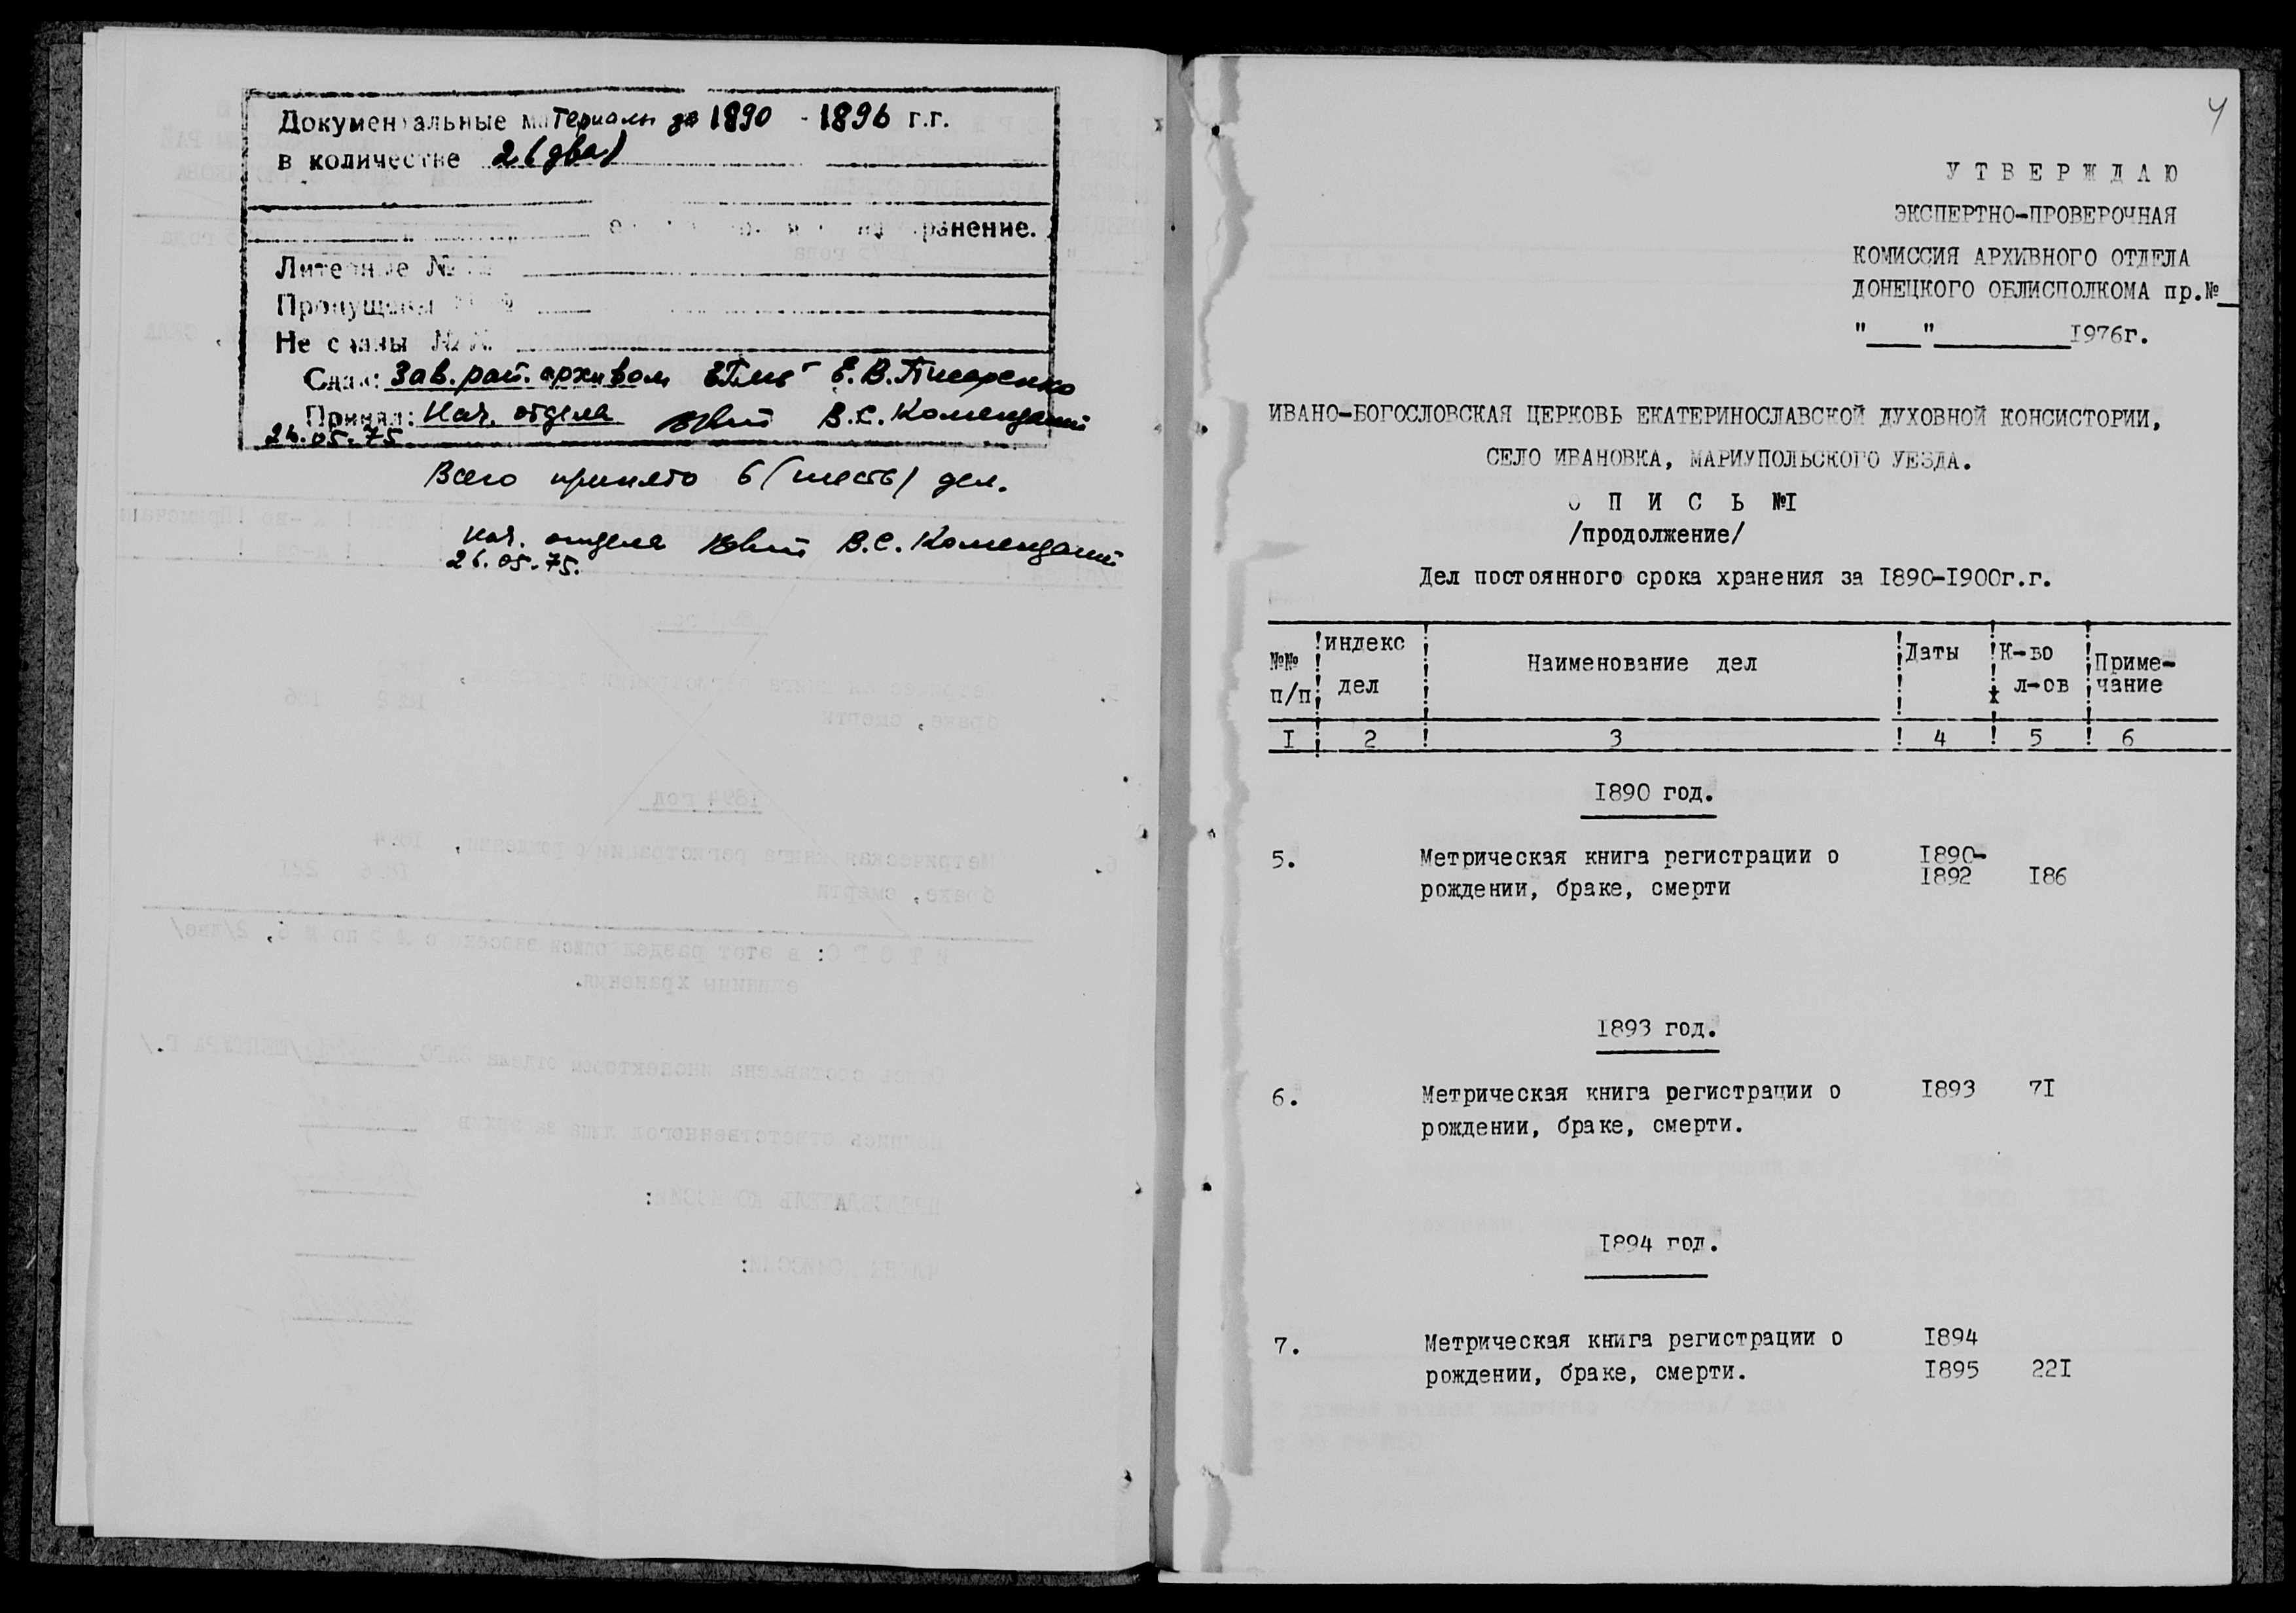 Документальные материалы за 1890 - 1896 г.г.
в количестве 2 (два)
хранение.
Литерные №№
Пропущены №№
Не сданы №№
Сдал: Зав. рай. архивом Е.В. Писаренко
Принял: Нач. отдела В.С. Комендант
26.05.75
Всего принято 6 (шесть) дел.
Нач. отдела В.С. Комендант
26.05.75.
4
У Т В Е Р Ж Д А Ю
ЭКСПЕРТНО-ПРОВЕРОЧНАЯ
КОМИССИЯ АРХИВНОГО ОТДЕЛА
ДОНЕЦКОГО ОБЛИСПОЛКОМА пр.№
"___"________1976г.
ИВАНО-БОГОСЛОВСКАЯ ЦЕРКОВЬ ЕКАТЕРИНОСЛАВСКОЙ ДУХОВНОЙ КОНСИСТОРИИ,
СЕЛО ИВАНОВКА, МАРИУПОЛЬСКОГО УЕЗДА.
О П И С Ь №I
/продолжение/
Дел постоянного срока хранения за I890-I900г.г.
№№ п/п ! индекс дел ! Наименование дел ! Даты ! К-во л-ов ! Приме-чание
I ! 2 ! 3 ! 4 ! 5 ! 6
I890 год.
5. Метрическая книга регистрации о I890-
рождении, браке, смерти I892 I86
I893 год.
6. Метрическая книга регистрации о I893 7I
рождении, браке, смерти.
I894 год.
7. Метрическая книга регистрации о I894
рождении, браке, смерти. I895 22I